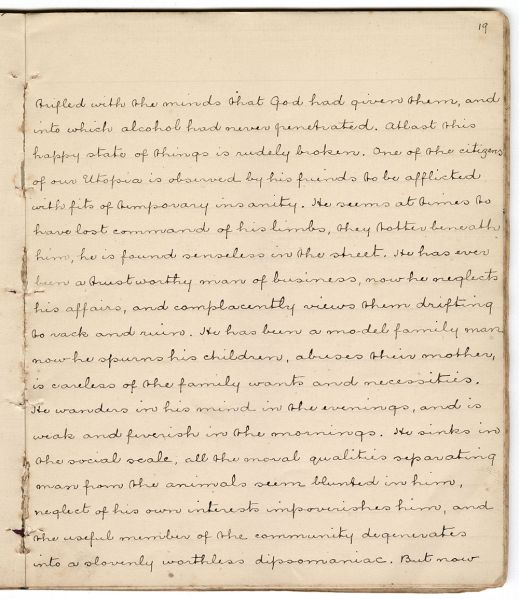 19
trifled with the minds that God had given them, and
into which alcohol had never penetrated. Atlast this
happy state of things is rudely broken. One of the citizens
of our Utopia is observed by his friends to be afflicted
with fits of temporary insanity. He seems at times to
have lost command of his limbs, they totter beneath
him, he is found senseless in the street. He has ever
been a trustworthy man of business, now he neglects
his affairs, and complacently views them drifting
to rack and ruin. He has been a model family man
now he spurns his children, abuses their mother,
is careless of the family wants and necessities.
He wanders in his mind in the evenings, and is
weak and feverish in the mornings. He sinks in
the social scale, all the moral qualities separating
man from the animals seem blunted in him,
neglect of his own interests impoverishes him, and
the useful member of the community degenerates
into a slovenly worthless dipsomaniac. But now